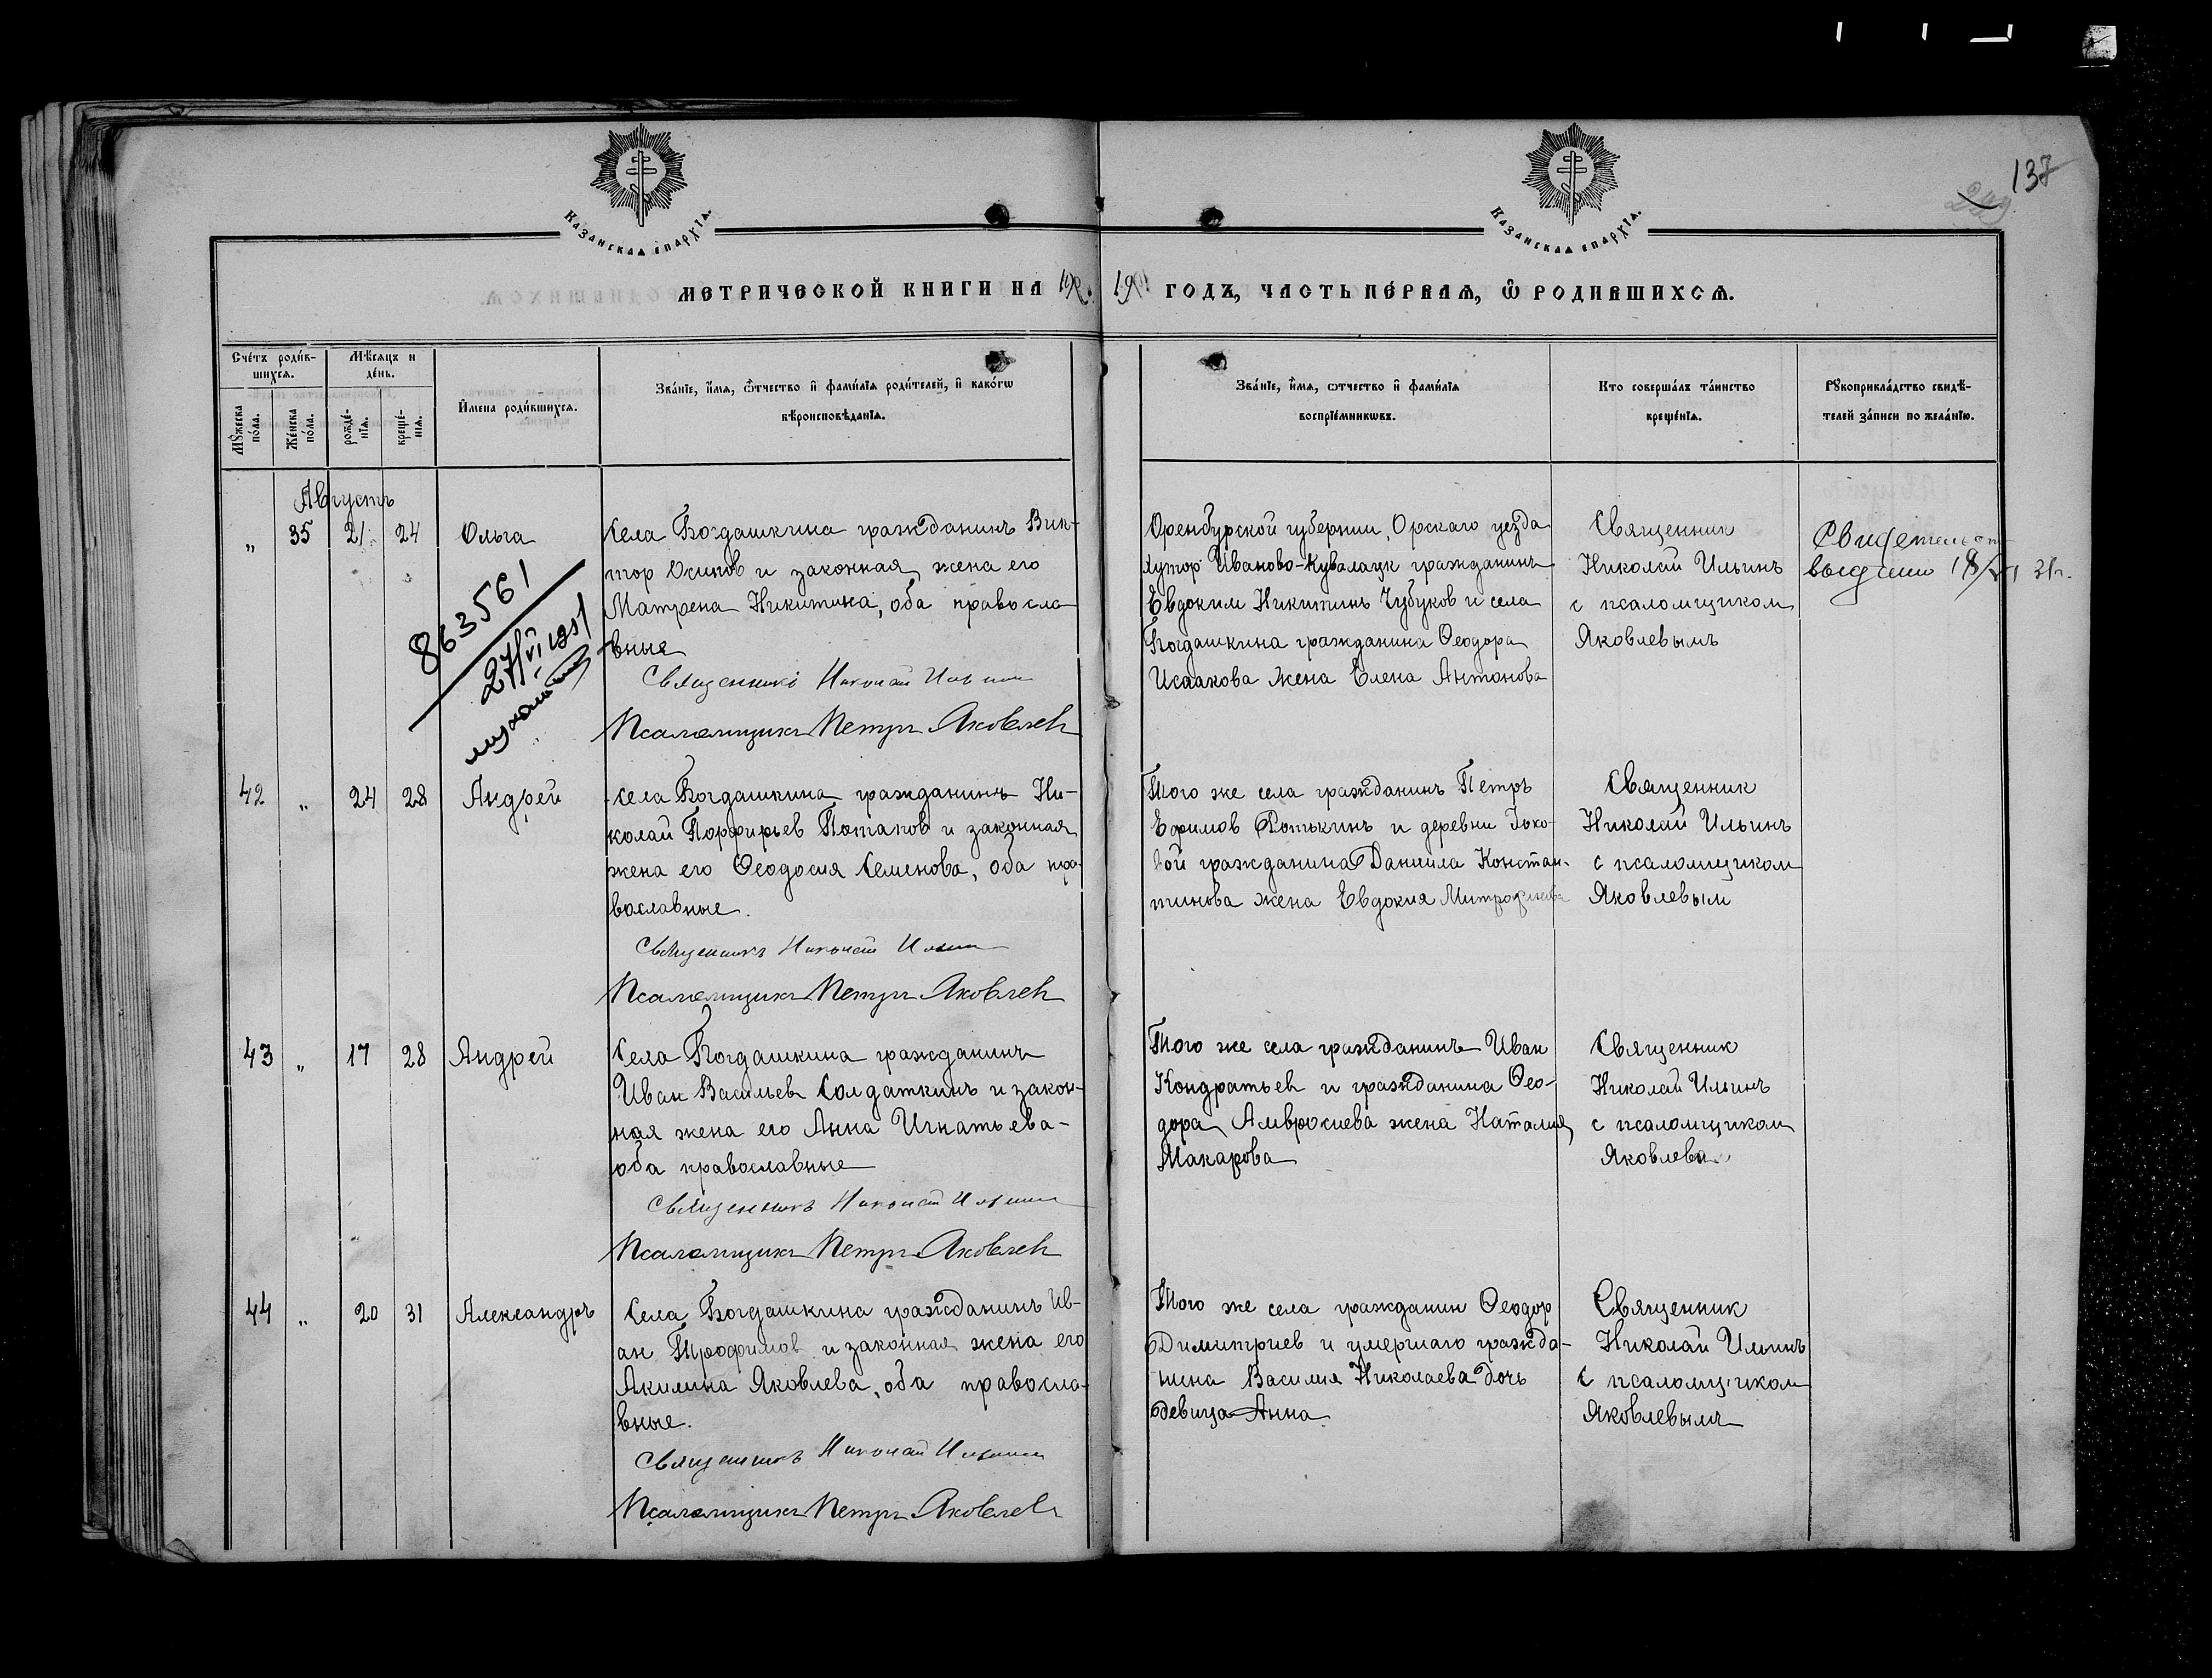 137
КАЗАНСКАѦ ЕПАРХІѦ.
КАЗАНСКАѦ ЕПАРХІѦ.
МЕТРИЧЕСКОЙ КНИГИ НА
ГОДЪ, ЧАСТЬ ПЕ́РВАѦ, Ѽ РОДИВШИХСѦ.
Сче́тъ роди́в-
шихсѧ.
Мѣ́сѧцъ и
де́нь.
Мꙋ́жеска
по́ла.
Же́нска
по́ла.
рожде́-
нїѧ.
креще́-
нїѧ.
И҆мена роди́вшихсѧ.
Зва́нїе, и҆́мѧ, ѻ҆́тчество и҆ фами́лїѧ роди́телей, и҆ како́гѡ
вѣроисповѣ́данїѧ.
Зва́нїе, и҆́мѧ, ѻ҆тчество и҆ фами́лїѧ
воспрїе́мникѡвъ.
Кто соверша́лъ та́инство
креще́нїѧ.
Рꙋкоприкла́дство свидѣ́-
телей за́писи по жела́нїю.
Августъ
„ 35 21 24 Ольга
Села Богдашкина гражданинъ Вик-
тор Осипов и законная жена его
Матрена Никитина, оба правосла-
вные
Священникъ Николай Ильин
Псаломщикъ Петръ Яковлев
863561
27/VI 1951
Оренбурской губернии, Орскаго уезда
хутор Иваново-Кувалаук гражданинъ
Евдоким Никитинъ Чубуков и села
Богдашкина гражданина Феодора
Исаакова жена Елена Антонова
Священник
Николай Ильинъ
с псаломщиком
Яковлевымъ
Свидетельст
выдано 31г.
42 „ 24 28 Андрей
Села Богдашкина гражданинъ Ни-
колай Порфирьев Потапов и законная
жена его Феодосия Семенова, оба пра-
вославные.
Священникъ Николай Ильин
Псаломщикъ Петръ Яковлев
Того же села гражданинъ Петръ
Ефимов и деревни
гражданина Даниила Констан-
тинова жена Евдокия Митрофанова
Священник
Николай Ильинъ
с псаломщиком
Яковлевым
43 „ 17 28 Андрей
Села Богдашкина гражданинъ
Иван Васильев Солдаткинъ и закон-
ная жена его Анна Игнатьева-
оба православные
Священникъ Николай Ильин
Псаломщикъ Петръ Яковлев
Того же села гражданинъ Иван
Кондратьев и гражданина Фео-
дора Амвросиева жена Наталия
Макарова
Священник
Николай Ильинъ
с псаломщиком
44 „ 20 31 Александръ
Села Богдашкина гражданинъ Ив-
ан Трофимов и законная жена его
Акилина Яковлева, оба правосла-
вные.
Священникъ Николай Ильин
Псаломщикъ Петръ Яковлев
Того же села гражданин Феодор
Димитриев и умершаго гражда-
нина Василия Николаева дочь
девица Анна
Священник
Николай Ильинъ
с псаломщиком
Яковлевымъ